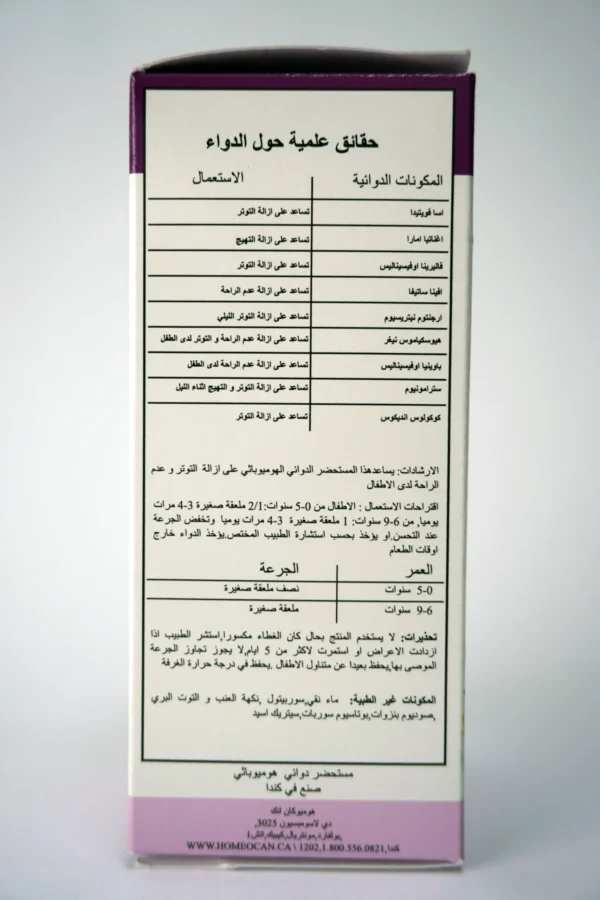 حقائق علمية حول الدواء
المكونات الدوائية الاستعمال
اسا فويتيدا تساعد على ازالة التوتر
اغناتيا امارا تساعد على ازالة التهيج
فاليرينا اوفيسيناليس تساعد على ازالة التوتر
افينا ساتيفا تساعد على ازالة عدم الراحة
ارجنتوم نيتريسيوم تساعد على ازالة التوتر الليلي
هيوسكياموس نيغر تساعد على ازالة عدم الراحة و التوتر لدى الطفل
باوينيا اوفيسيناليس تساعد على ازالة عدم الراحة لدى الطفل
سترامونيوم تساعد على ازالة التوتر و التهيج اثناء الليل
كوكولوس انديكوس تساعد على ازالة التوتر
الارشادات: يساعدهذا المستحضر الدوائي الهوميوباثي على ازالة التوتر و عدم
الراحة لدى الاطفال
اقتراحات الاستعمال : الاطفال من 0-5 سنوات:2/1 ملعقة صغيرة 3-4 مرات
يوميا, من 6-9 سنوات: 1 ملعقة صغيرة 3-4 مرات يوميا وتخفض الجرعة
عند التحسن,او يؤخذ بحسب استشارة الطبيب المختص.يؤخذ الدواء خارج
اوقات الطعام
العمر الجرعة
5-0 سنوات نصف ملعقة صغيرة
9-6 سنوات ملعقة صغيرة
تحذيرات: لا يستخدم المنتج بحال كان الغطاء مكسورا,استشر الطبيب اذا
ازدادت الاعراض او استمرت لاكثر من 5 ايام,لا يجوز تجاوز الجرعة
الموصى بها,يحفظ بعيدا عن متناول الاطفال .يحفظ في درجة حرارة الغرفة
المكونات غير الطبية: ماء نقي,سوربيتول ,نكهة العنب و التوت البري
,صوديوم بنزوات,بوتاسيوم سوربات,سيتريك اسيد
مستحضر دوائي هوميوباثي
صنع في كندا
هوميوكان انك
3025, دي لاسومبسيون
,بولفارد,مونتريال,كيبيك,اتش1
كندا,1202,1.800.556.0821 \ WWW.HOMEOCAN.CA